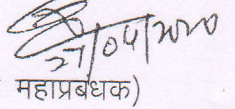 27/04/2020
महाप्रबंधक)